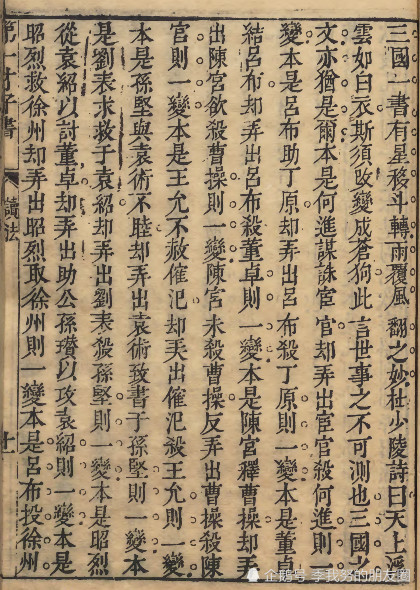 三國一書有星移斗轉雨覆風翻之妙杜少陵詩曰天上浮
雲如白衣斯須改變成蒼狗此言世事之不可測也三國之
文亦猶是爾本是何進謀誅宦官却弄出宦官殺何進則一
變本是呂布助丁原却弄出呂布殺丁原則一變本是董卓
結呂布却弄出呂布殺董卓則一變本是陳宮釋曹操却弄
出陳宮欲殺曹操則一變陳宮未殺曹操反弄出曹操殺陳
宮則一變本是王允不赦傕汜却弄出傕汜殺王允則一變
本是孫堅與袁術不睦却弄出袁術致書于孫堅則一變本
是劉表求救于袁紹却弄出劉表殺孫堅則一變本是昭烈
從袁紹以討董卓却弄出助公孫瓚以攻袁紹則一變本是
昭烈救徐州却弄出昭烈取徐州則一變本是呂布投徐州
第一才子書 讀法 十一
企鹅号 李我努的朋友圈